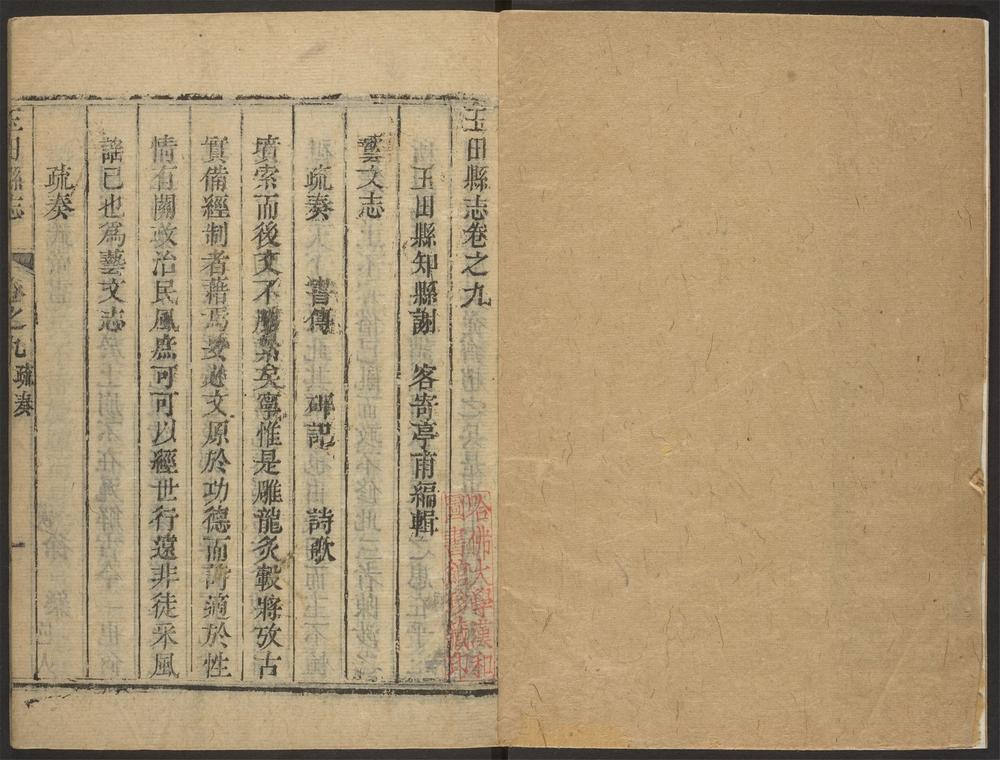 玉田縣志卷之九
玉田縣知縣謝 客寄亭甫編輯
藝文志
疏奏 書傳 碑記 詩歌
墳索而後文不勝繁矣寧惟是雕龍炙轂將攷古
實備經制者藉焉要迹文原於功德而詩適於性
情有關政治民風庶可可以經世行遠非徒采風
謠已也爲藝文志
疏奏
玉田縣志 卷之九 疏奏 一
哈佛大學漢和
圖書館珍藏印